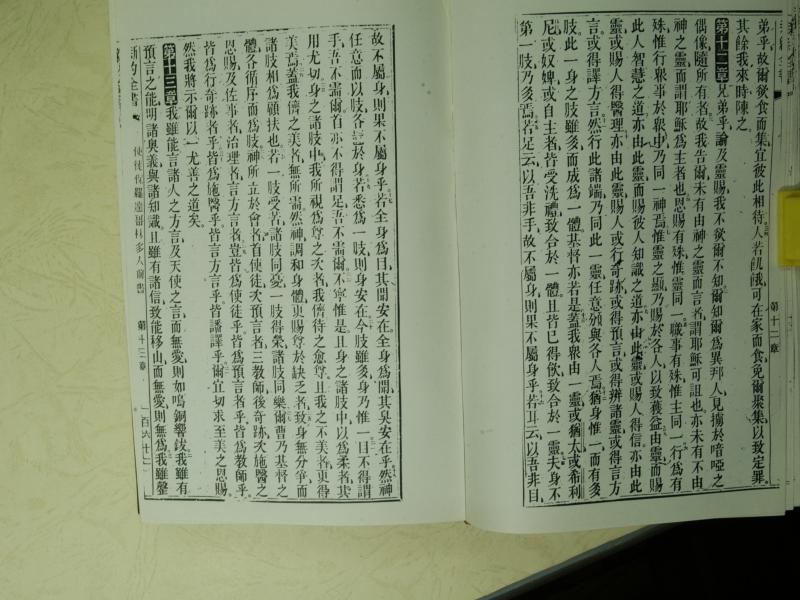 弟乎故爾欲食而集宜彼此相待人若飢餓可在家而食免爾聚集以致定罪
其餘我來時陳之
第十二章 兄弟乎論及靈賜我不欲爾不知爾知爾爲異邦人見搊於喑啞之
偶像隨所有者故我告爾未有由神之靈而言者謂耶穌可詛也亦未有不由
神之靈而謂耶穌爲主者也恩賜有殊惟靈同一職事有殊惟主同一行爲有
殊惟行衆事於衆中乃同一神焉惟靈之顯乃賜於各人以致獲益由靈而賜
此人智慧之道亦由此靈而賜彼人知識之道亦由此靈或賜人得信亦由此
靈或賜人得醫理亦由此靈賜人或行奇跡或得預言或得辨諸靈或得言方
言或得譯方言然行此諸端乃同此一靈任意頒與各人焉猶身惟一而有多
肢此一身之肢雖多而成爲一體基督亦若是蓋我衆由一靈或猶太或希利
尼或奴婢或自主者皆受洗禮致合於一體且皆已得飲致合於一靈夫身不
第一肢乃多焉若足云以吾非手故不屬身則果不屬身乎若耳云以吾非目
第十二章
故不屬身則果不屬身乎若全身爲目其聞安在全身爲聞其臭安在乎然神
任意而以肢各於身若悉爲一肢則身安在今肢雖多身乃惟一目不得謂
手吾不需爾首亦不得謂足吾不需爾不寧惟是且身之諸肢中以爲柔者其
用尤切身之諸肢中我所視爲尊之次者我儕待之愈尊且我之不美者更得
美焉蓋我儕之美者無所需然神調和身體更賜尊於缺乏者致身無分爭而
諸肢相爲顧扶也若一肢受苦諸肢同憂一肢得榮諸肢同樂爾曹乃基督之
體各循序而爲肢神所立於會者首使徒次預言者三教師後奇跡次施醫之
恩賜及佐事者治理者言方言者豈皆爲使徒乎皆爲預言者乎皆爲教師乎
皆爲行奇跡者乎皆爲施醫乎皆言方言乎皆譯乎爾宜切求至美之恩賜
然我將示爾以一尤善之道矣
第十三章 我雖能言諸人之方言及天使之言而無愛則如鳴銅響鈸我雖有
預言之能明諸奧義與諸知識且雖有諸信致能移山而無愛則無爲我雖罄
新約全書 使徒保羅達哥林多人前書 第十三章 一百六十二